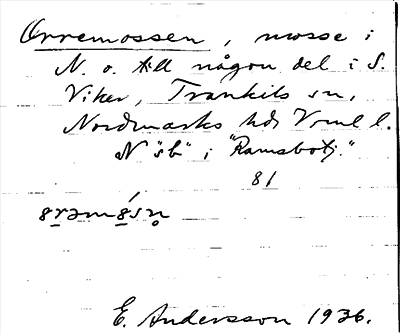 Orremossen, mosse i
N. o. till någon del i S.
Viker, Trankils sn,
Nordmarks hd, Vrml l.
N "sb" i "Ramsbotj."
81
E. Andersson 1936.